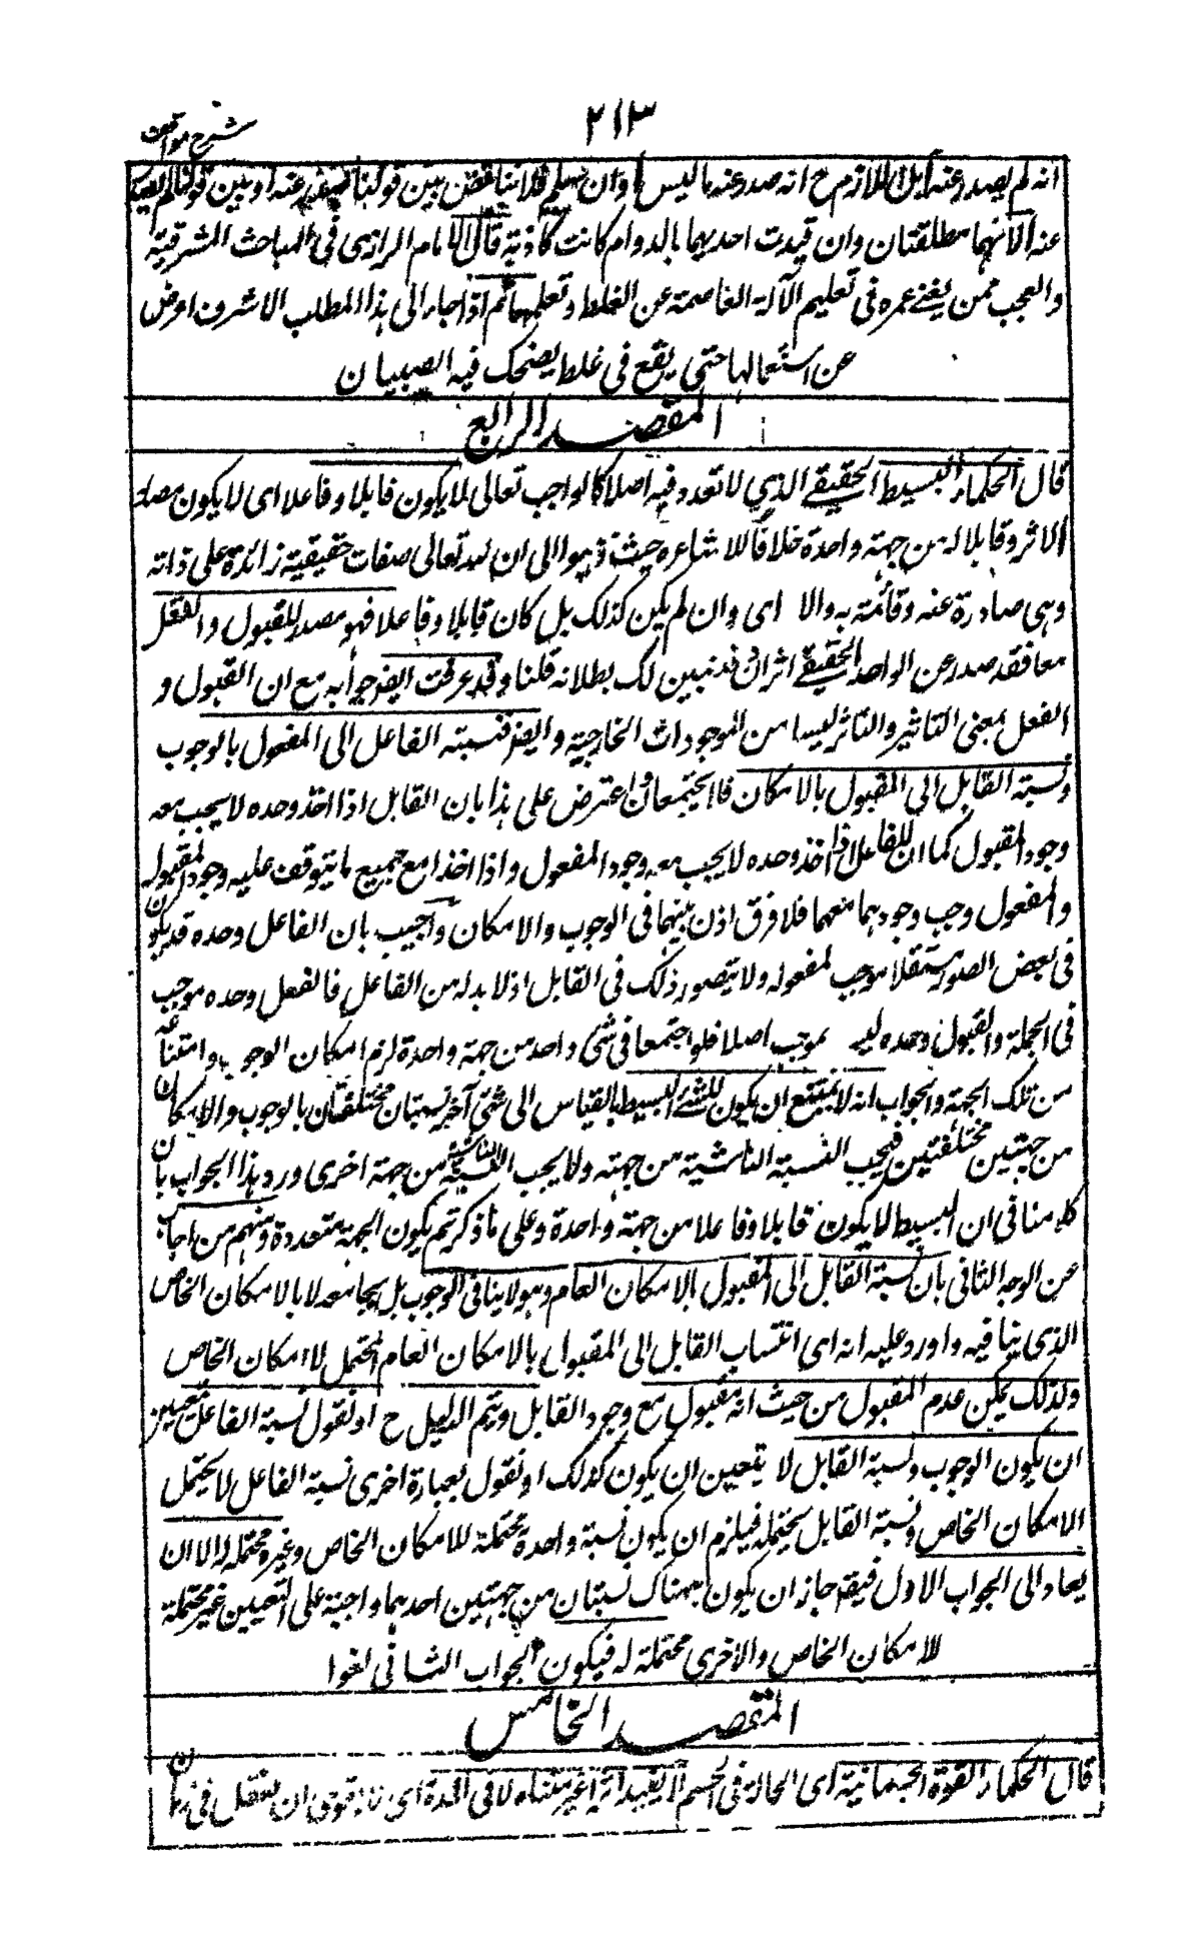 ٢١٣
شرح مواقف
انه لم يصدر عنه أبل اللازم ح انه صدر عنه ما ليس أ وان سلم فلا تناقض بين قولنا صدر عنه أ وبين قولنا لم يصدر
عنه ألانهما مطلقتان وان قيدت احديهما بالدوام كانت كاذبة قال الامام الرازى فى المباحث المشرقية
والعجب ممن يفنى عمره فى تعليم الآلة العاصمة عن الغلط وتعلمها ثم اذا جاء الى هذا المطلب الاشرف اعرض
عن استعمالها حتى يقع فى غلط يضحك فيه الصبيان
المقصد الرابع
قال الحكماء البسيط الحقيقے الذي لا تعدد فيه اصلا كالواجب تعالى لا يكون قابلا وفاعلا اى لا يكون مصدر
الاثر وقابلا له من جهة واحدة خلافا للاشاعره حيث ذهبوا الى ان لله تعالى صفات حقيقية زائدة على ذاته
وهى صادرة عنه وقائمة به والا اى وان لم يكن كذلك بل كان قابلا وفاعلا فهو مصدر للقبول والفعل
معا فقد صدر عن الواحد الحقيقے اثران قد تبين لك بطلانه قلنا وقد عرفت ايضا جوابه مع ان القبول و
الفعل بمعنى التاثير والتاثر ليسا من الموجودات الخارجية وايضا فنسبة الفاعل الى المفعول بالوجوب
ونسبة القابل الى المقبول بالامكان فلا يجتمعان واعترض على هذا بان القابل اذا اخذ وحده لا يجب معه
وجود المقبول كما ان الفاعل اذا اخذ وحده لا يجب معه وجود المفعول واذا اخذا مع جميع ما يتوقف عليه وجود المقبول
والمفعول وجب وجودهما معهما فلا فرق اذن بينهما فى الوجوب والامكان واجيب بان الفاعل وحده قد يكون
فى بعض الصور مستقلا موجب لمفعوله ولا يتصور ذلك فى القابل اذ لا بد له من الفاعل فالفعل وحده موجب
فى الجملة والقبول وحده ليس بموجب اصلا فلو اجتمعا فى شئ واحد من جهة واحدة لزم امكان الوجوب وامتناعه
من تلك الجهة والجواب انه لا يمتنع ان يكون للشئ البسيط بالقياس الى شئ آخر نسبتان مختلفتان بالوجوب والامكان
من جهتين مختلفتين فيجب النسبة الناشية من جهة ولا يجب النسبة الناشية من جهة اخرى ورد هذا الجواب بان
كلامنا فى ان البسيط لا يكون قابلا وفاعلا من جهة واحدة وعلى ما ذكرتم يكون الجهة متعددة ومنهم من اجاب
عن الوجه الثانى بان نسبة القابل الى المقبول بالامكان العام وهو لا ينافى الوجوب بل يجامعه لا بالامكان الخاص
الذى ينافيه واورد عليه انه اي انتساب القابل الى المقبول بالامكان العام المحتمل للامكان الخاص
ولذلك يمكن عدم المقبول من حيث انه مقبول مع وجود القابل ويتم الدليل ح او نقول نسبة الفاعل يتعين
ان يكون الوجوب ونسبة القابل لا يتعين ان يكون كذلك او نقول بعبارة اخرى نسبة الفاعل لا يحتمل
الامكان الخاص ونسبة القابل يحتمله فيلزم ان يكون نسبة واحدة محتملة للامكان الخاص وغير محتملة له الا ان
يعاد الى الجواب الاول فيقال جاز ان يكون هناك نسبتان من جهتين احدهما واجبة على التعيين غير محتملة
للامكان الخاص والاخرى محتملة له فيكون الجواب الثانى لغوا
المقصد الخامس
قال الحكماء القوة الجسمانية اى الحالة فى الجسم لا يفيد اثرا غير متناه لا فى المدة اى لا تقوى ان تفعل فى زمان